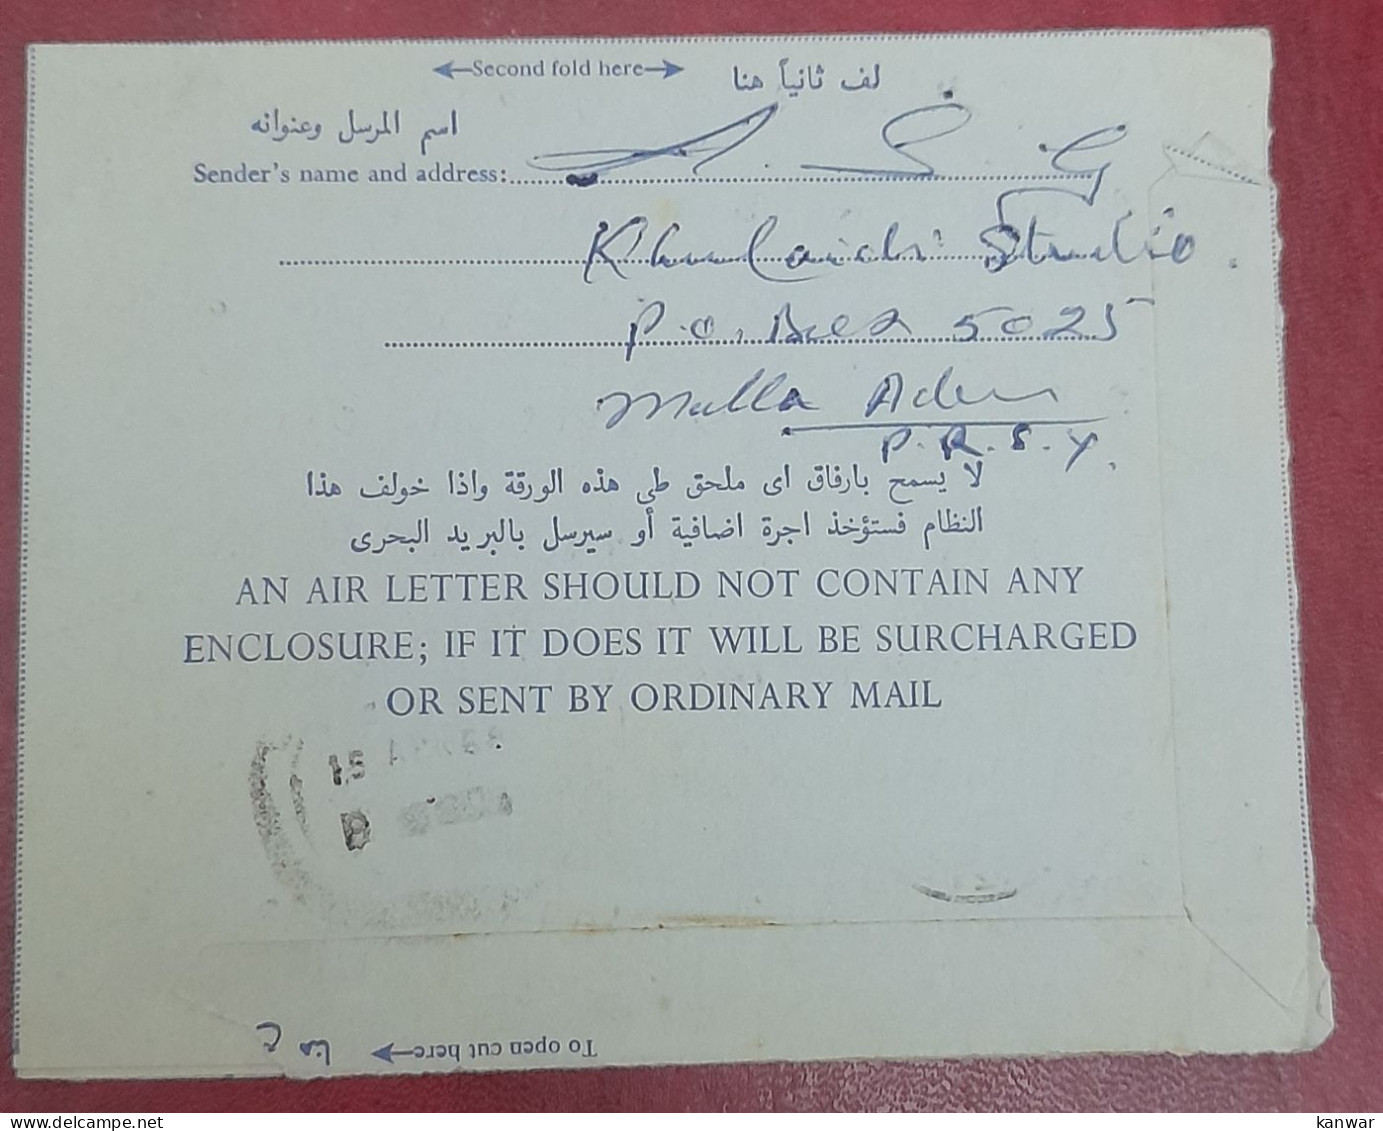 ←Second fold here→ لف ثانياً هنا
اسم المرسل وعنوانه
Sender's name and address: A. S. G
Studio
P.O. Box 5025
Malla Aden
P.R.S.Y.
لا يسمح بارفاق اى ملحق طى هذه الورقة واذا خولف هذا
النظام فستؤخذ اجرة اضافية أو سيرسل بالبريد البحرى
AN AIR LETTER SHOULD NOT CONTAIN ANY
ENCLOSURE; IF IT DOES IT WILL BE SURCHARGED
OR SENT BY ORDINARY MAIL
To open cut here→
kanwar